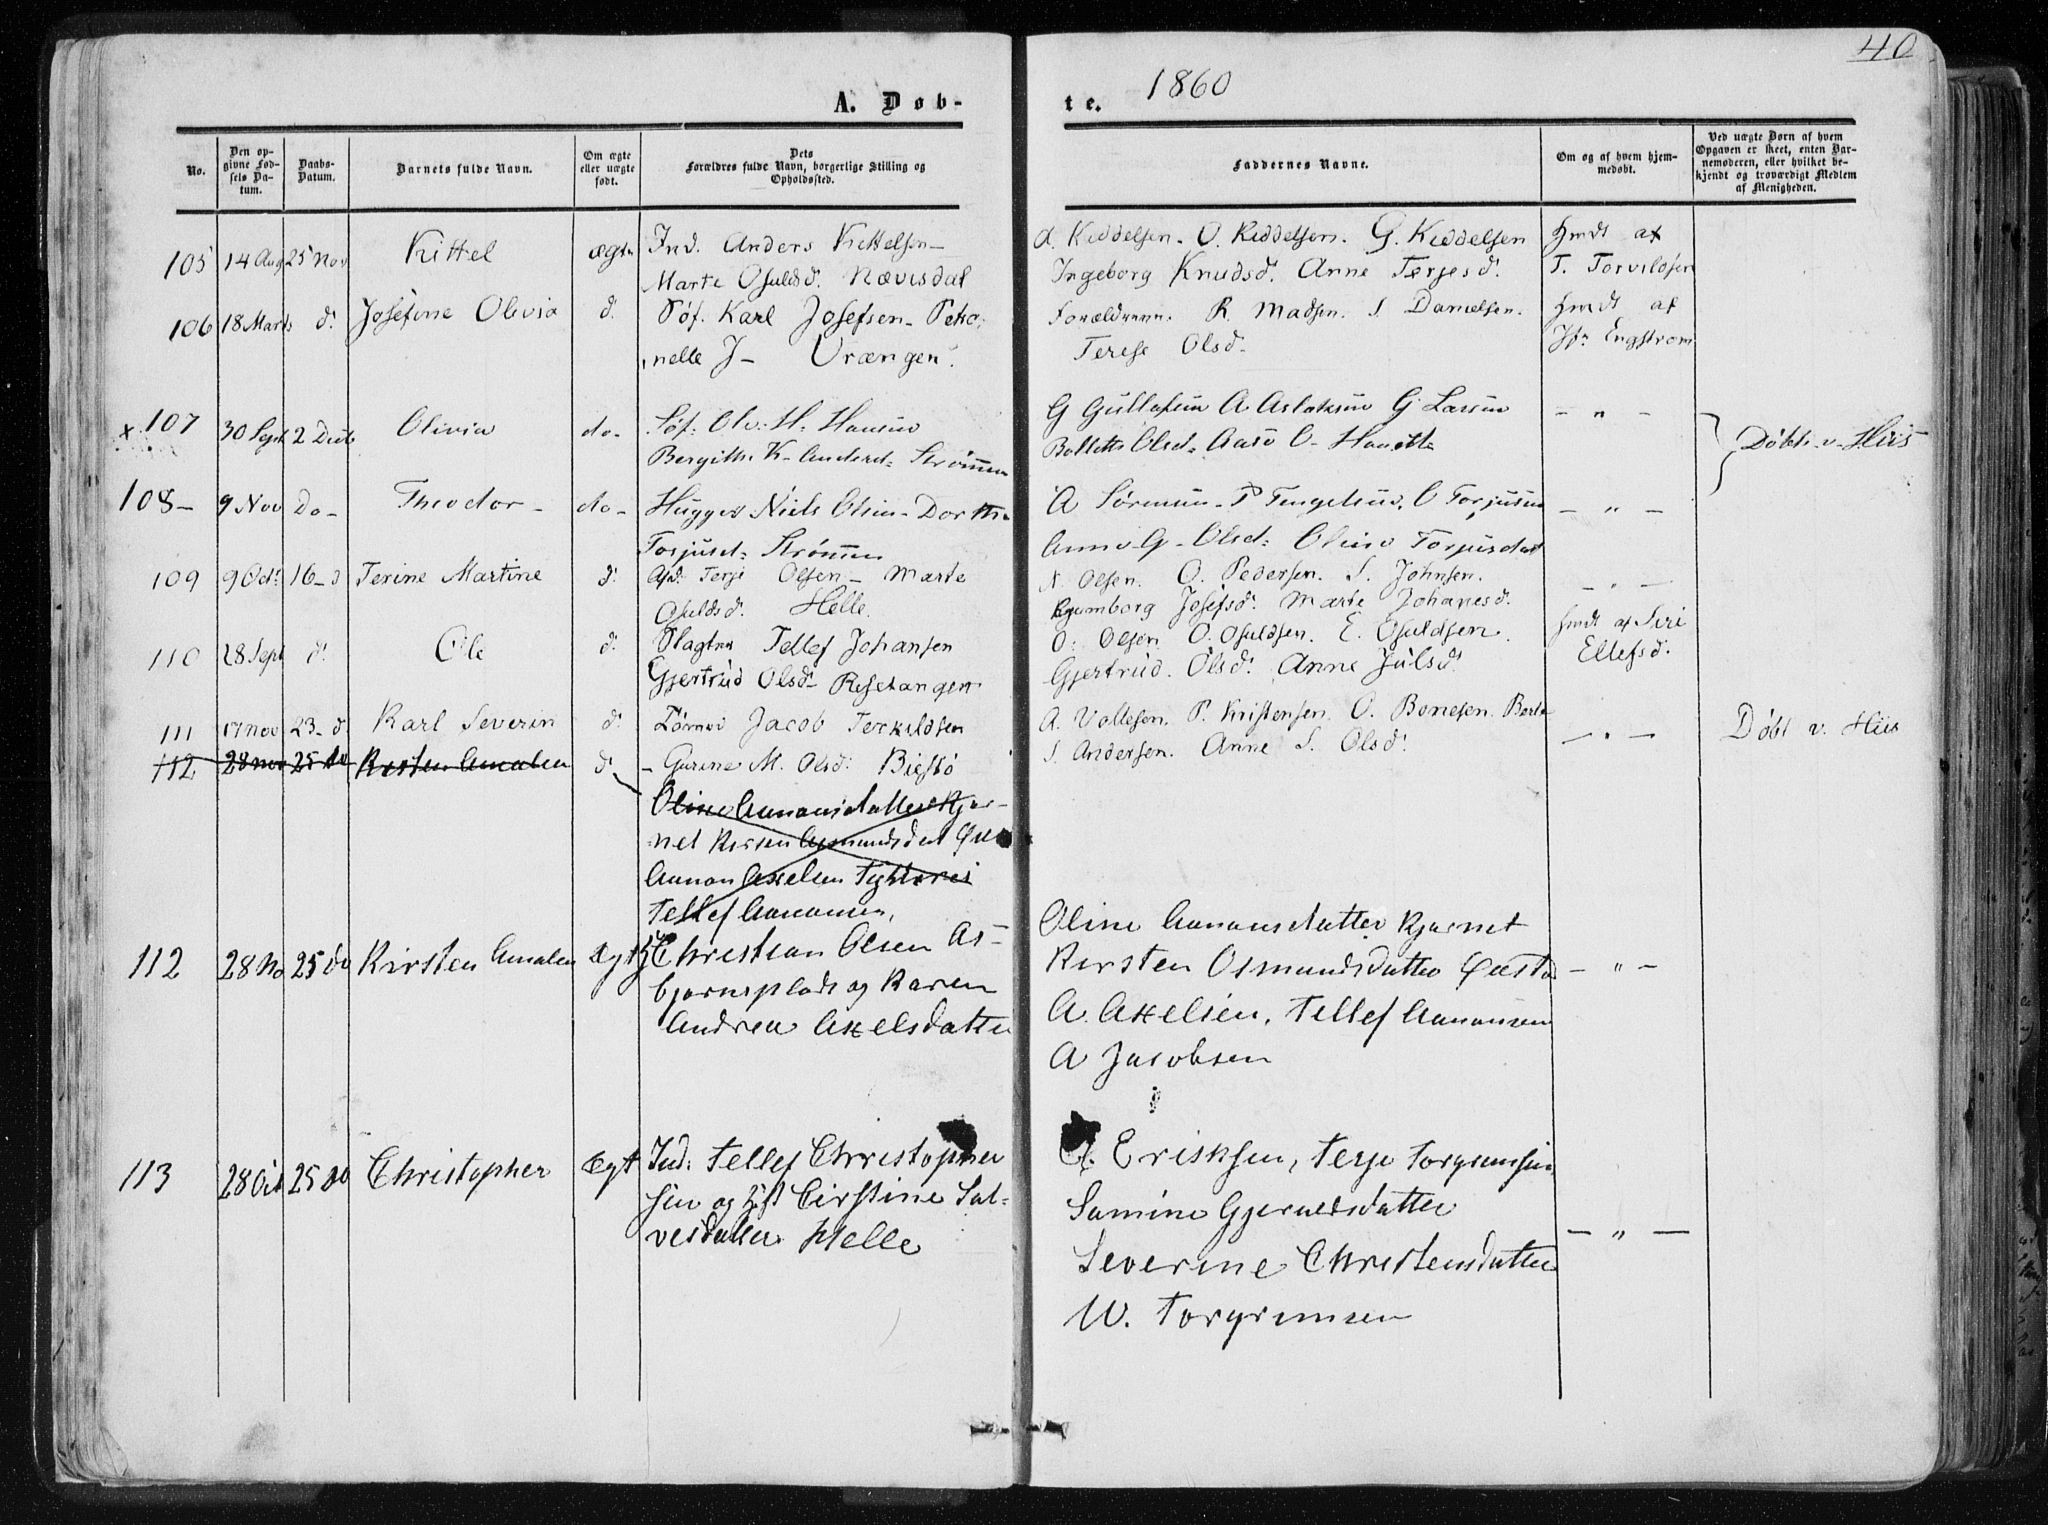 40
1860
A. Døb-
te.
No.
Den op-
givne Fød-
sels Da-
tum.
Daabs-
Datum.
Barnets fulde Navn.
Om ægte
eller uægte
født.
Dets
Forældres fulde Navn, borgerlige Stilling og
Opholdssted.
Faddernes Navne.
Om og af hvem hjem-
medøbt.
Ved uægte Børn af hvem
Opgaven er skeet, enten Bar-
nemoderen, eller hvilket be-
kjendt og troværdigt Medlem
af Menigheden.
105 14 Aug 25 Nov Kittel ægte Ind. Anders Kittelsen -
Marte Osulsd. Nævisdal
A. Kiddelsen. O. Kiddelsen. G. Kiddelsen
Ingeborg Knudsd. Anne Terjesd.
hmdt af
T. Torvildsen
106 18 Marts d. Josefine Olivia d. Søf. Karl Josefsen - Petro-
nelle J - Vrængen.
Forældrene. R. Madsen. S. Danielsen.
Terese Olsd.
hmdt af
Engstrom
x 107 30 Sept 2 Dec Olivia do- Søf. Ol. H. Hansen
Bergithe K. Andersd. Strömmen
G Gullofsen A Aslaksen G Larsen
Bollette Olsd. Aase O.
- " -
Døbt v. Hiis
108- 9 Nov Do- Theodor - do- Niels Olsen - Dorthe
Torjusd. Strömmen
A Sörensen - P Tengelsen, O Torjusen
Anne G - Olsd. Torjusdat
- " -
109 9 Oct. 16 - d Terine Martine d. Terje Olsen - Marte
Osuldsd. Helle.
N. Olsen. O. Pedersen. S. Johnsen.
Josefsd. Marte Johanesd.
- " -
110 28 Sept d. Ole d. Slagter Tellef Johansen
Gjertrud Olsd. Resetangen
O. Olsen O. Osuldsen. E. Osuldsen.
Gjertrud. Olsd. Anne Julsd.
hmdt af Siri
Ellefsd.
111 17 Nov 23 - d Karl Severin d. Jacob Terkildsen
- Gurine M. Olsd. Biestø
A. Vollesen. P. Kristensen. O. Bonesen.
S. Andersen. Anne S. Olsd.
- " -
Døbt v. Hiis
112 28 Nov 25 do Kirsten Amalen d.
Oline Aanonsdatter Kjør-
net Kirsten Asmundsdat
Aanon Axelsen
Tellef Aanonsen,
112 28 No 25 do Kirsten Amalen Ægt Christian Olsen As-
bjornsplads og Karen
Andrea Axelsdatter
Oline Aanonsdatter Kjørnet
Kirsten Osmundsdatter
A. Axelsen, Tellef Aanonsen
A Jacobsen
- " -
113 28 Oct 25 do Christopher Ægt Ind. Tellef Christopher
sen og Cirstine Sal-
vesdatter Helle
Eriksen, Terje Torgrimsen
Samine Gjeruldsdatter
Severine Christensdatter
W. Torgrimsen
- " -